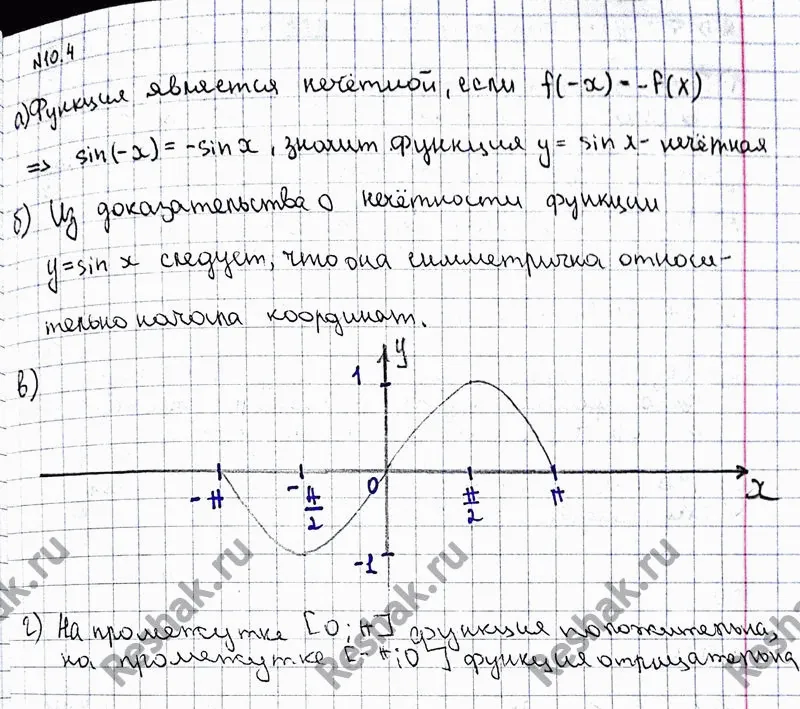 N10.4
а) Функция является нечётной, если f(-x) = -f(x)
=> sin(-x) = -sin x, значит функция y = sin x - нечётная
б) Из доказательства о нечётности функции
y = sin x следует, что она симметрична относи-
тельно начала координат.
в)
y
1
-π
-π/2
0
π/2
π
x
-1
г) На промежутке [0; π] функция положительна,
на промежутке [-π; 0] функция отрицательна
Reshak.ru
Reshak.ru
Reshak.ru
Reshak.ru